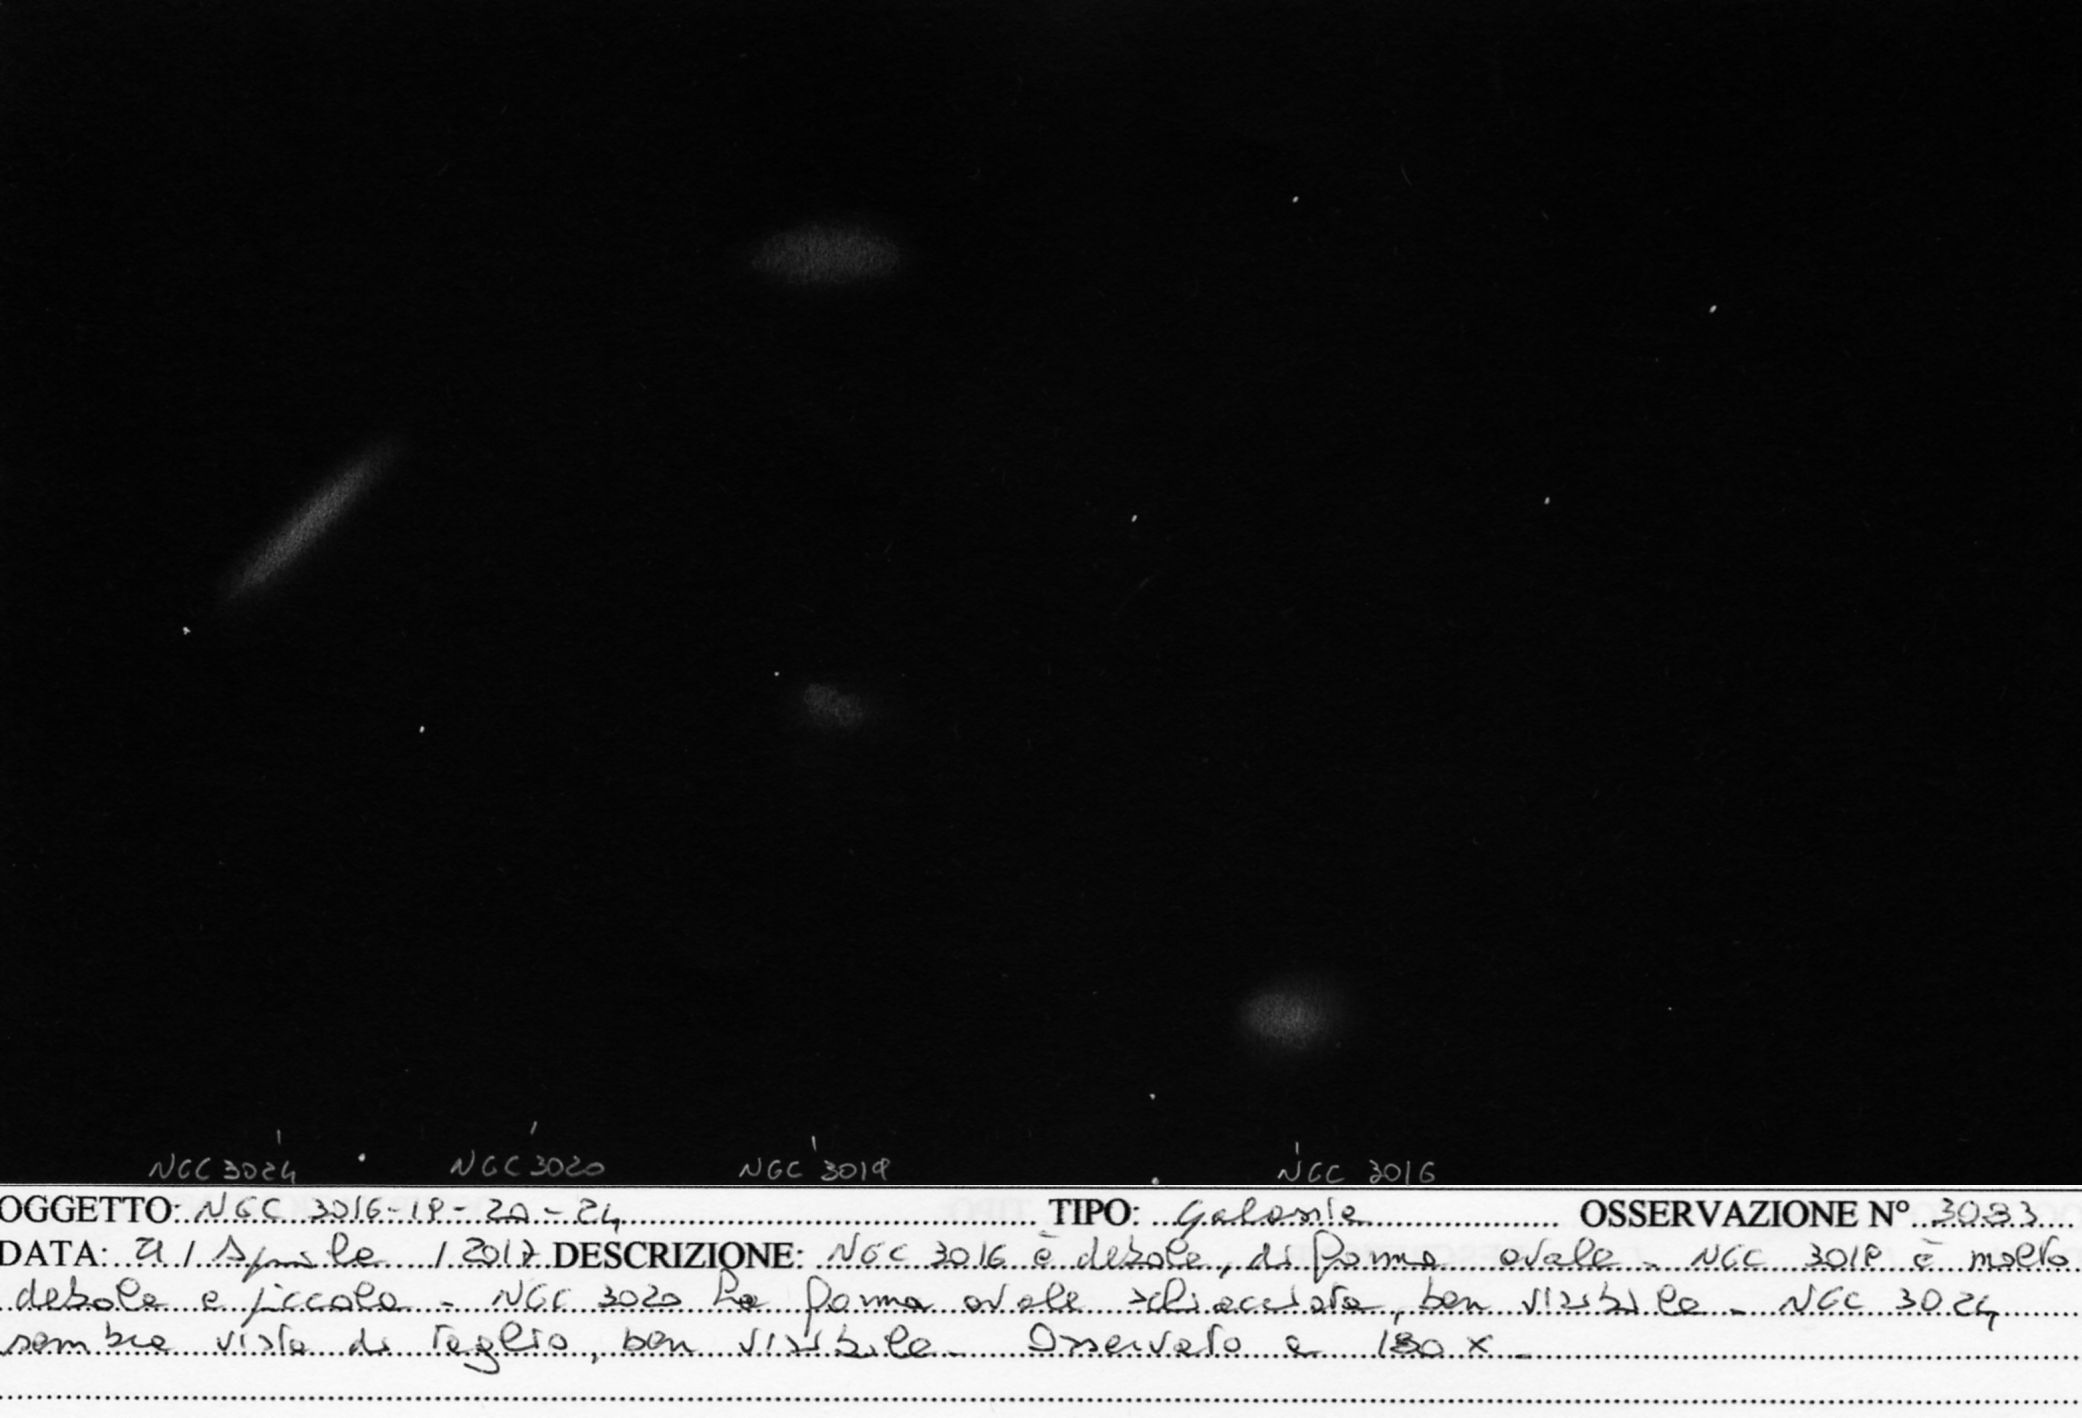 NGC 3024 NGC 3020 NGC 3019 NGC 3016
OGGETTO: NGC 3016-19-20-24 TIPO: Galassie OSSERVAZIONE N° 3093
DATA: 21 / Aprile / 2017 DESCRIZIONE: NGC 3016 è debole, di forma ovale - NGC 3019 è molto
debole e piccola - NGC 3020 ha forma ovale schiacciata, ben visibile - NGC 3024
sembra vista di taglio, ben visibile. Osservato a 180 X -